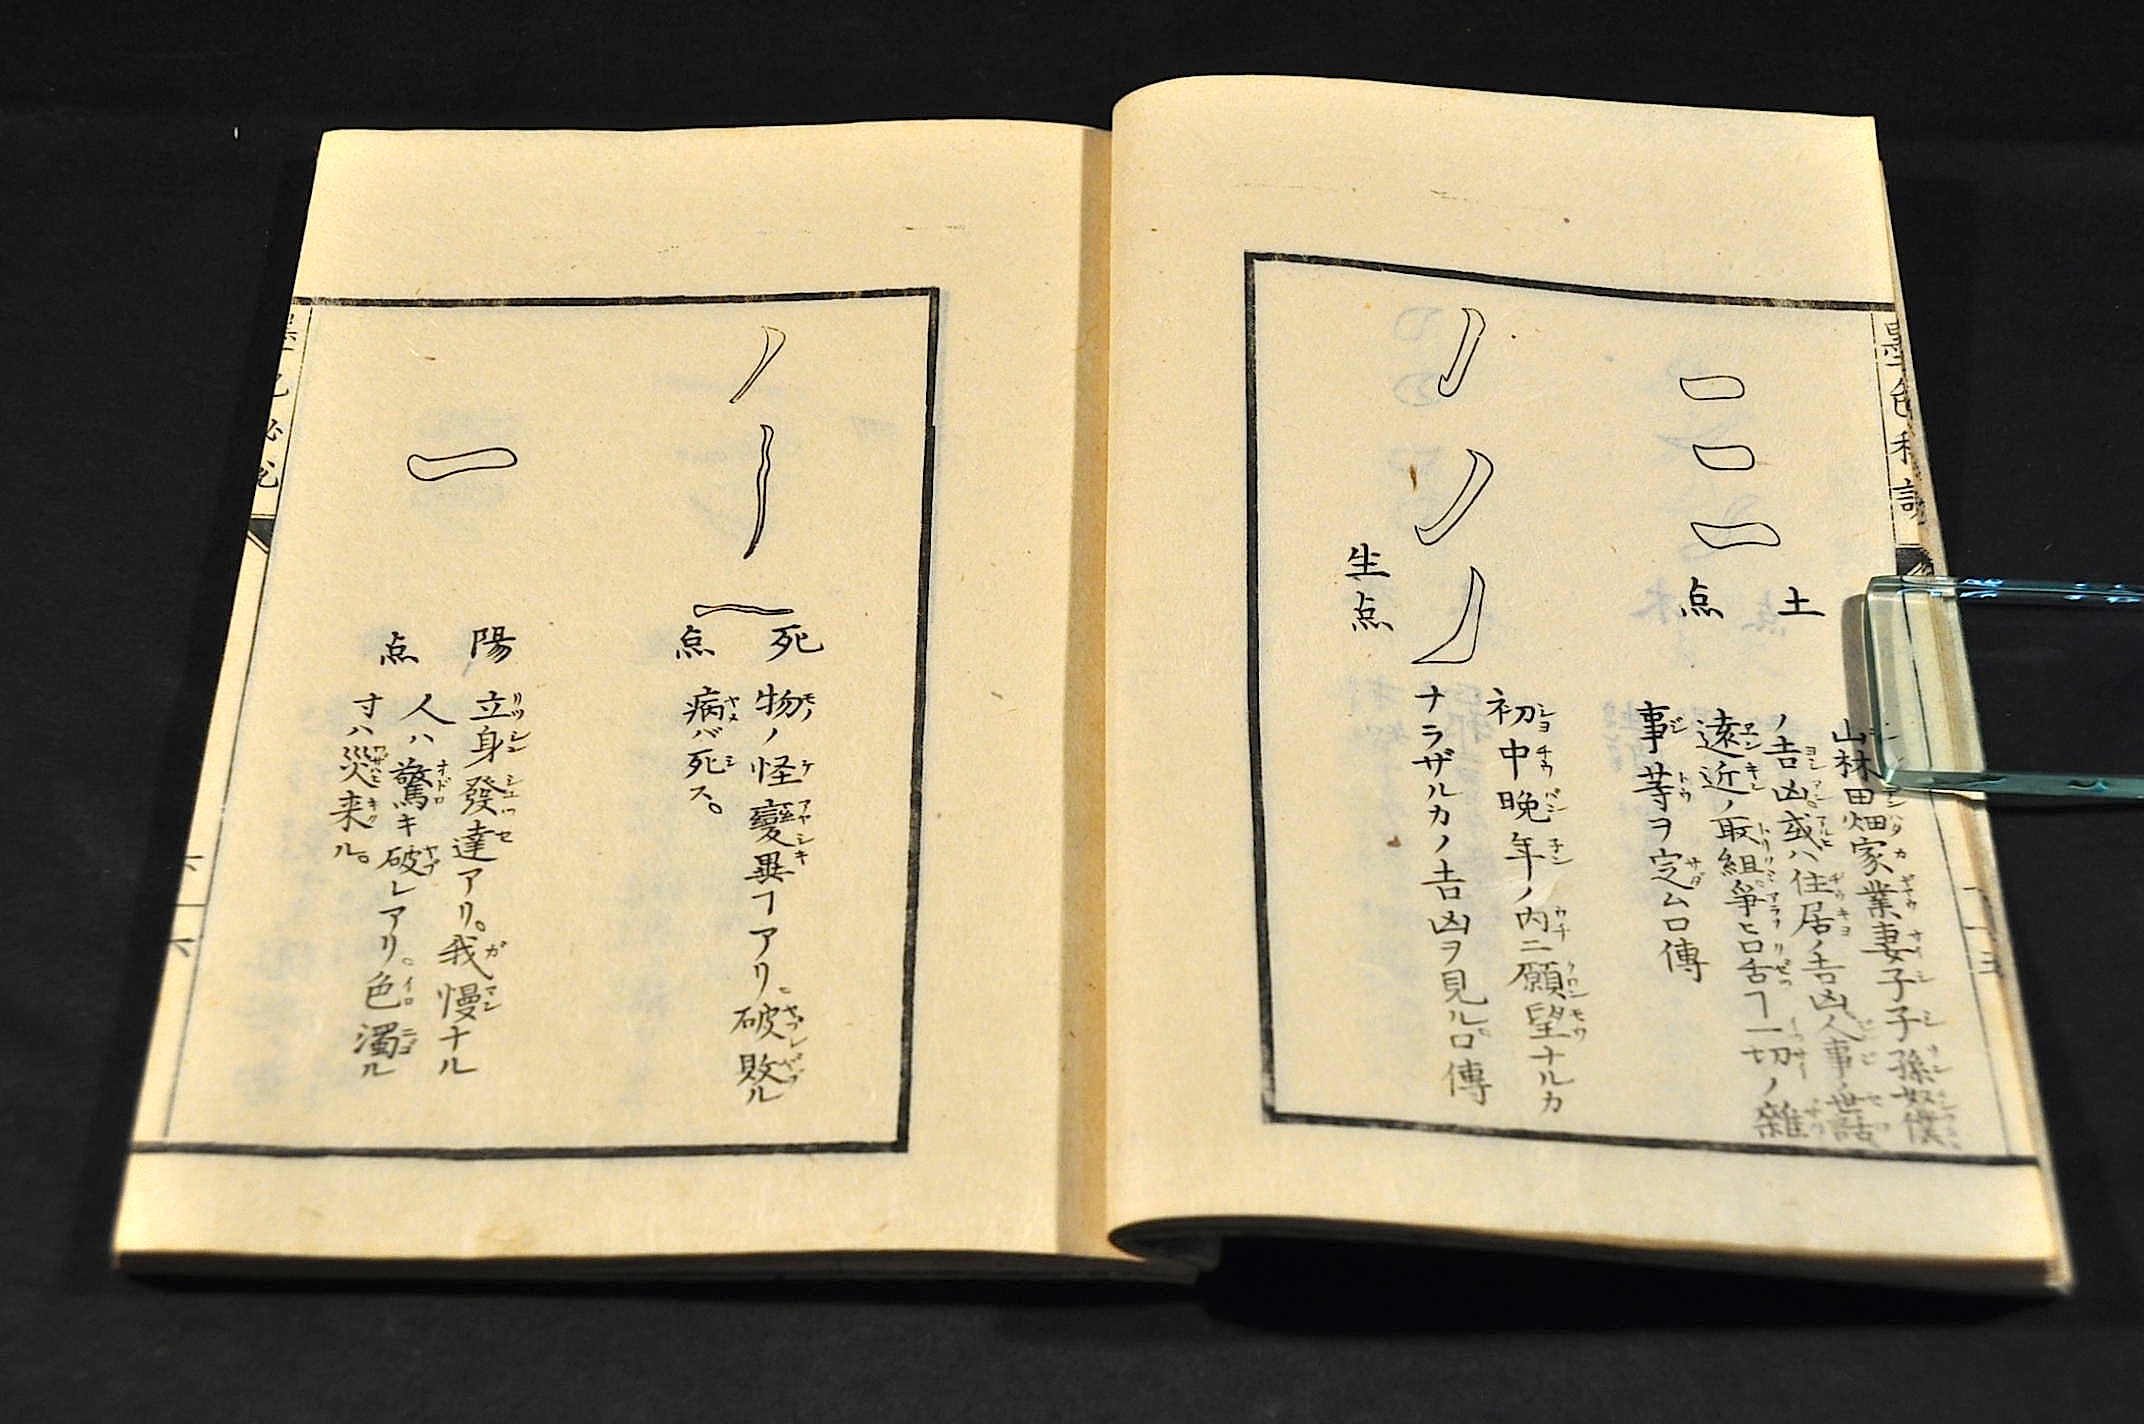 墨色秘説
土点
山林田畑家業妻子子孫奴僕
ノ吉凶。或ハ住居ノ吉凶人事ノ世話
遠近ノ取組。爭ヒ口舌ヿ一切ノ雜
事等ヲ定ムロ傳
生点
初中晩年ノ内ニ願望ナルカ
ナラザルカノ吉凶ヲ見ル口傳
死点
物ノ怪變異ヿアリ。破敗ル
病バ死ス。
陽点
立身發達アリ。我慢ナル
人ハ驚キ破レアリ。色濁ル
寸ハ災来ル。
墨色秘説
六